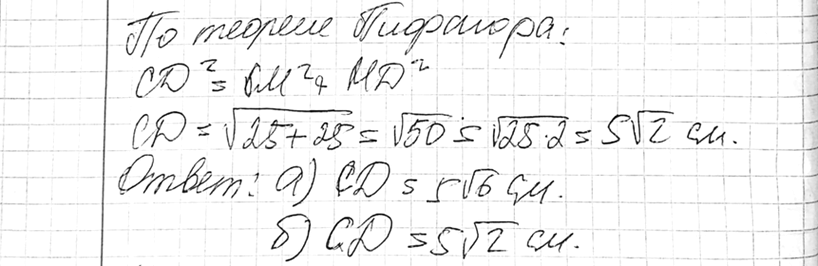 По теореме Пифагора:
CD² = CM² + MD²
CD = √25+25 = √50 = √25·2 = 5√2 см.
Ответ: а) CD = 5√6 см.
б) CD = 5√2 см.